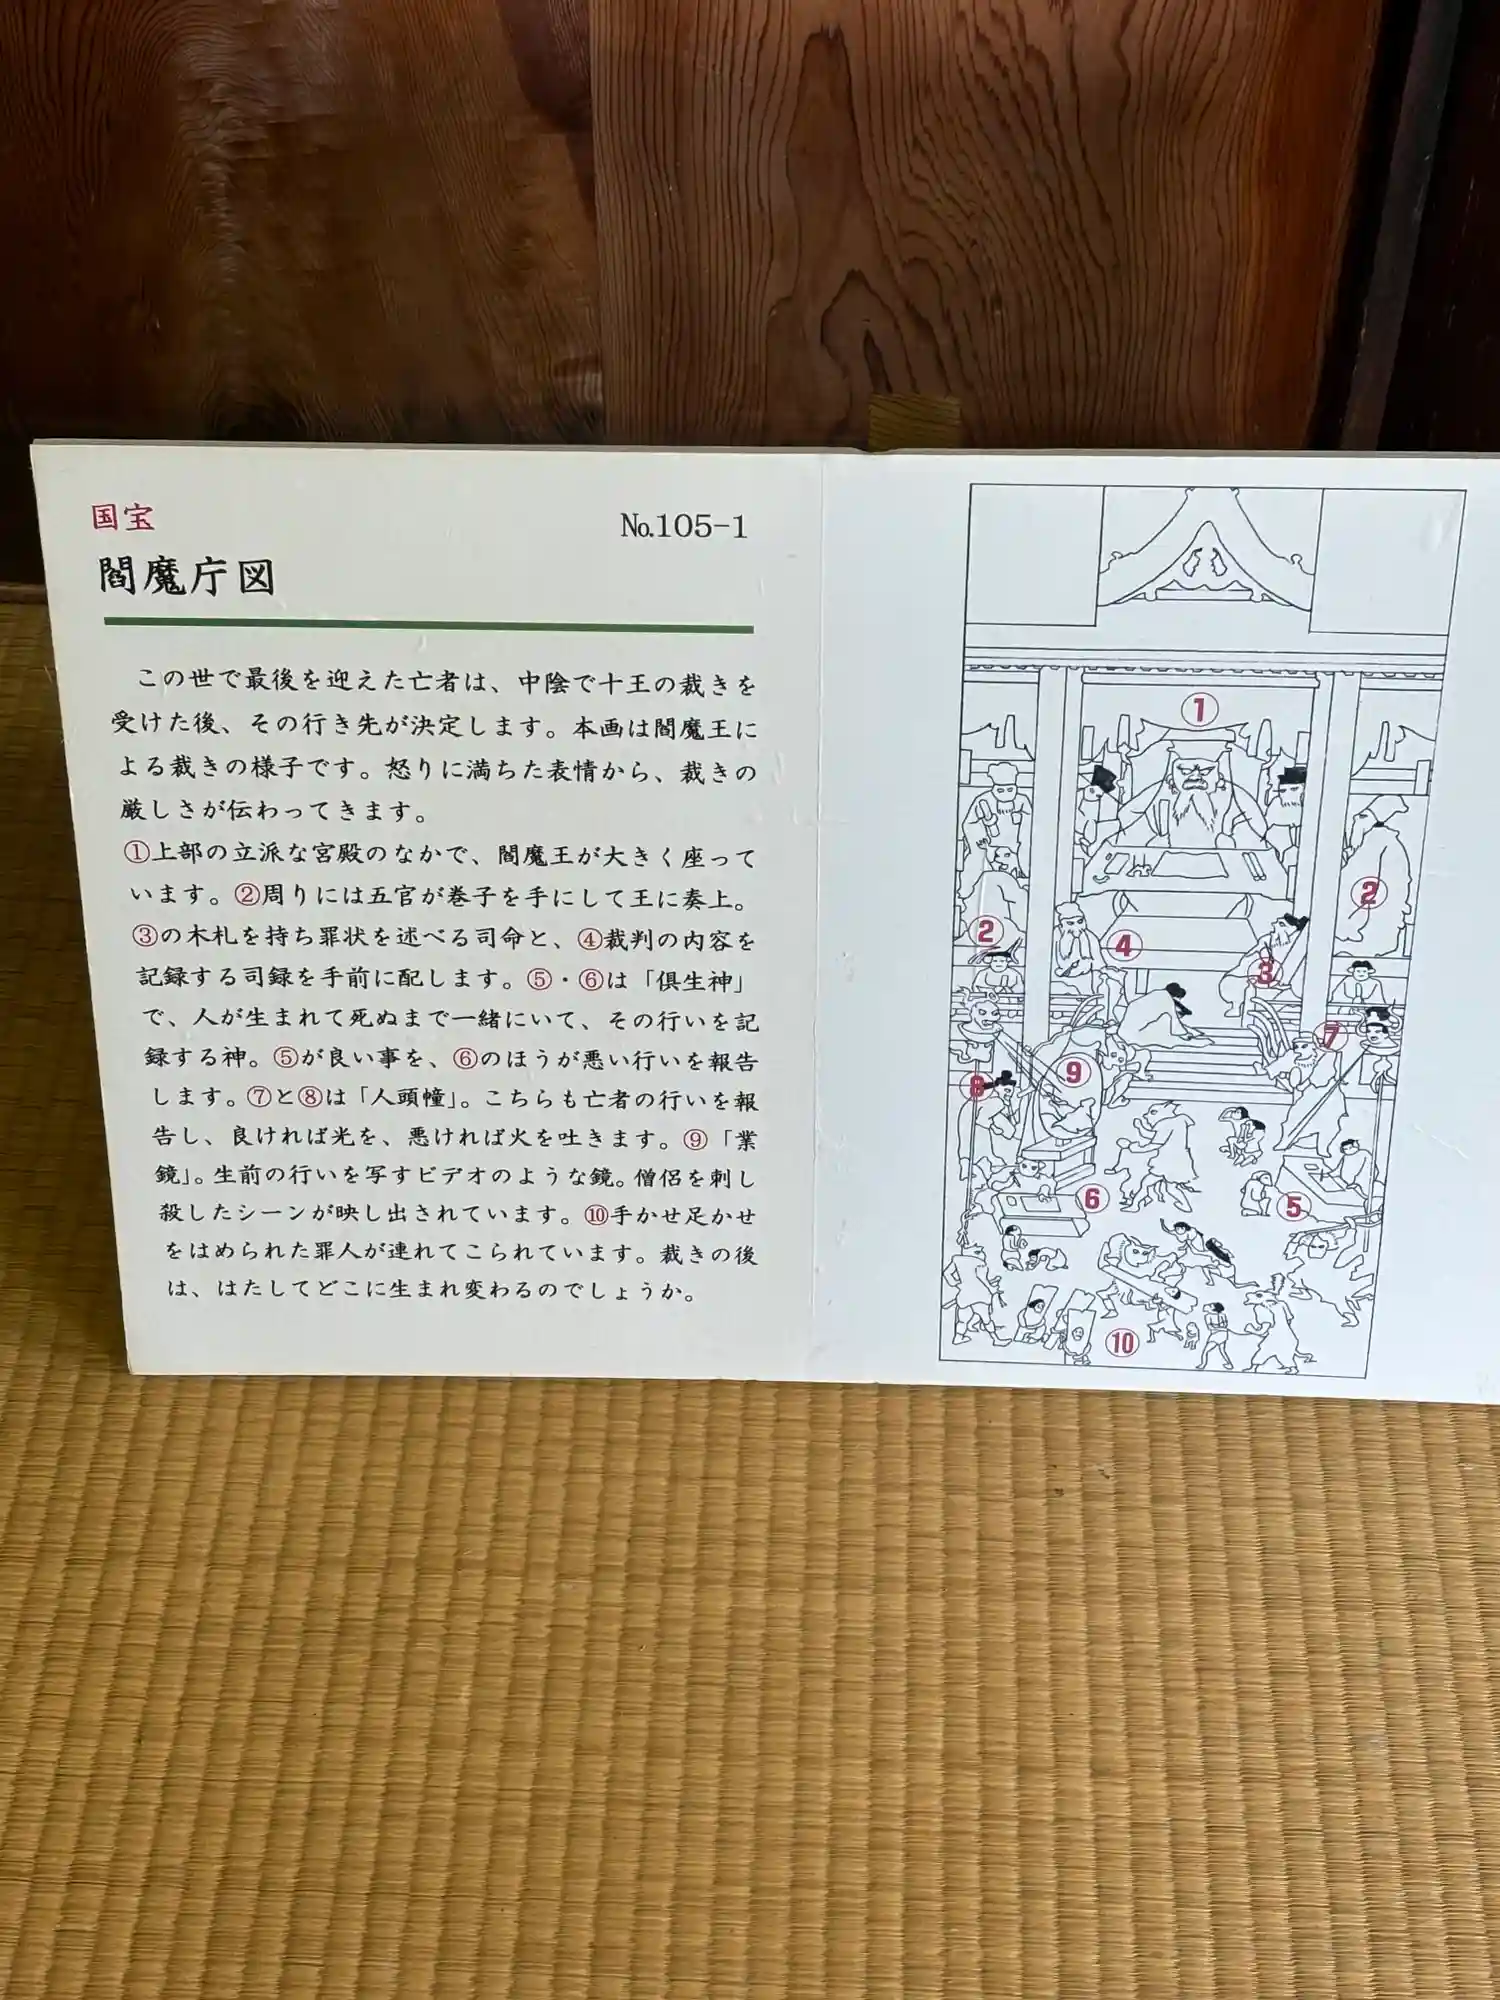 国宝
No.105-1
閻魔庁図
この世で最後を迎えた亡者は、中陰で十王の裁きを
受けた後、その行き先が決定します。本画は閻魔王に
よる裁きの様子です。怒りに満ちた表情から、裁きの
厳しさが伝わってきます。
①上部の立派な宮殿のなかで、閻魔王が大きく座って
います。②周りには五官が巻子を手にして王に奏上。
③の木札を持ち罪状を述べる司命と、④裁判の内容を
記録する司録を手前に配します。⑤・⑥は「倶生神」
で、人が生まれて死ぬまで一緒にいて、その行いを記
録する神。⑤が良い事を、⑥のほうが悪い行いを報告
します。⑦と⑧は「人頭幢」。こちらも亡者の行いを報
告し、良ければ光を、悪ければ火を吐きます。⑨「業
鏡」。生前の行いを写すビデオのような鏡。僧侶を刺し
殺したシーンが映し出されています。⑩手かせ足かせ
をはめられた罪人が連れてこられています。裁きの後
は、はたしてどこに生まれ変わるのでしょうか。
①
②
②
④
③
⑦
⑨
⑧
⑥
⑤
⑩